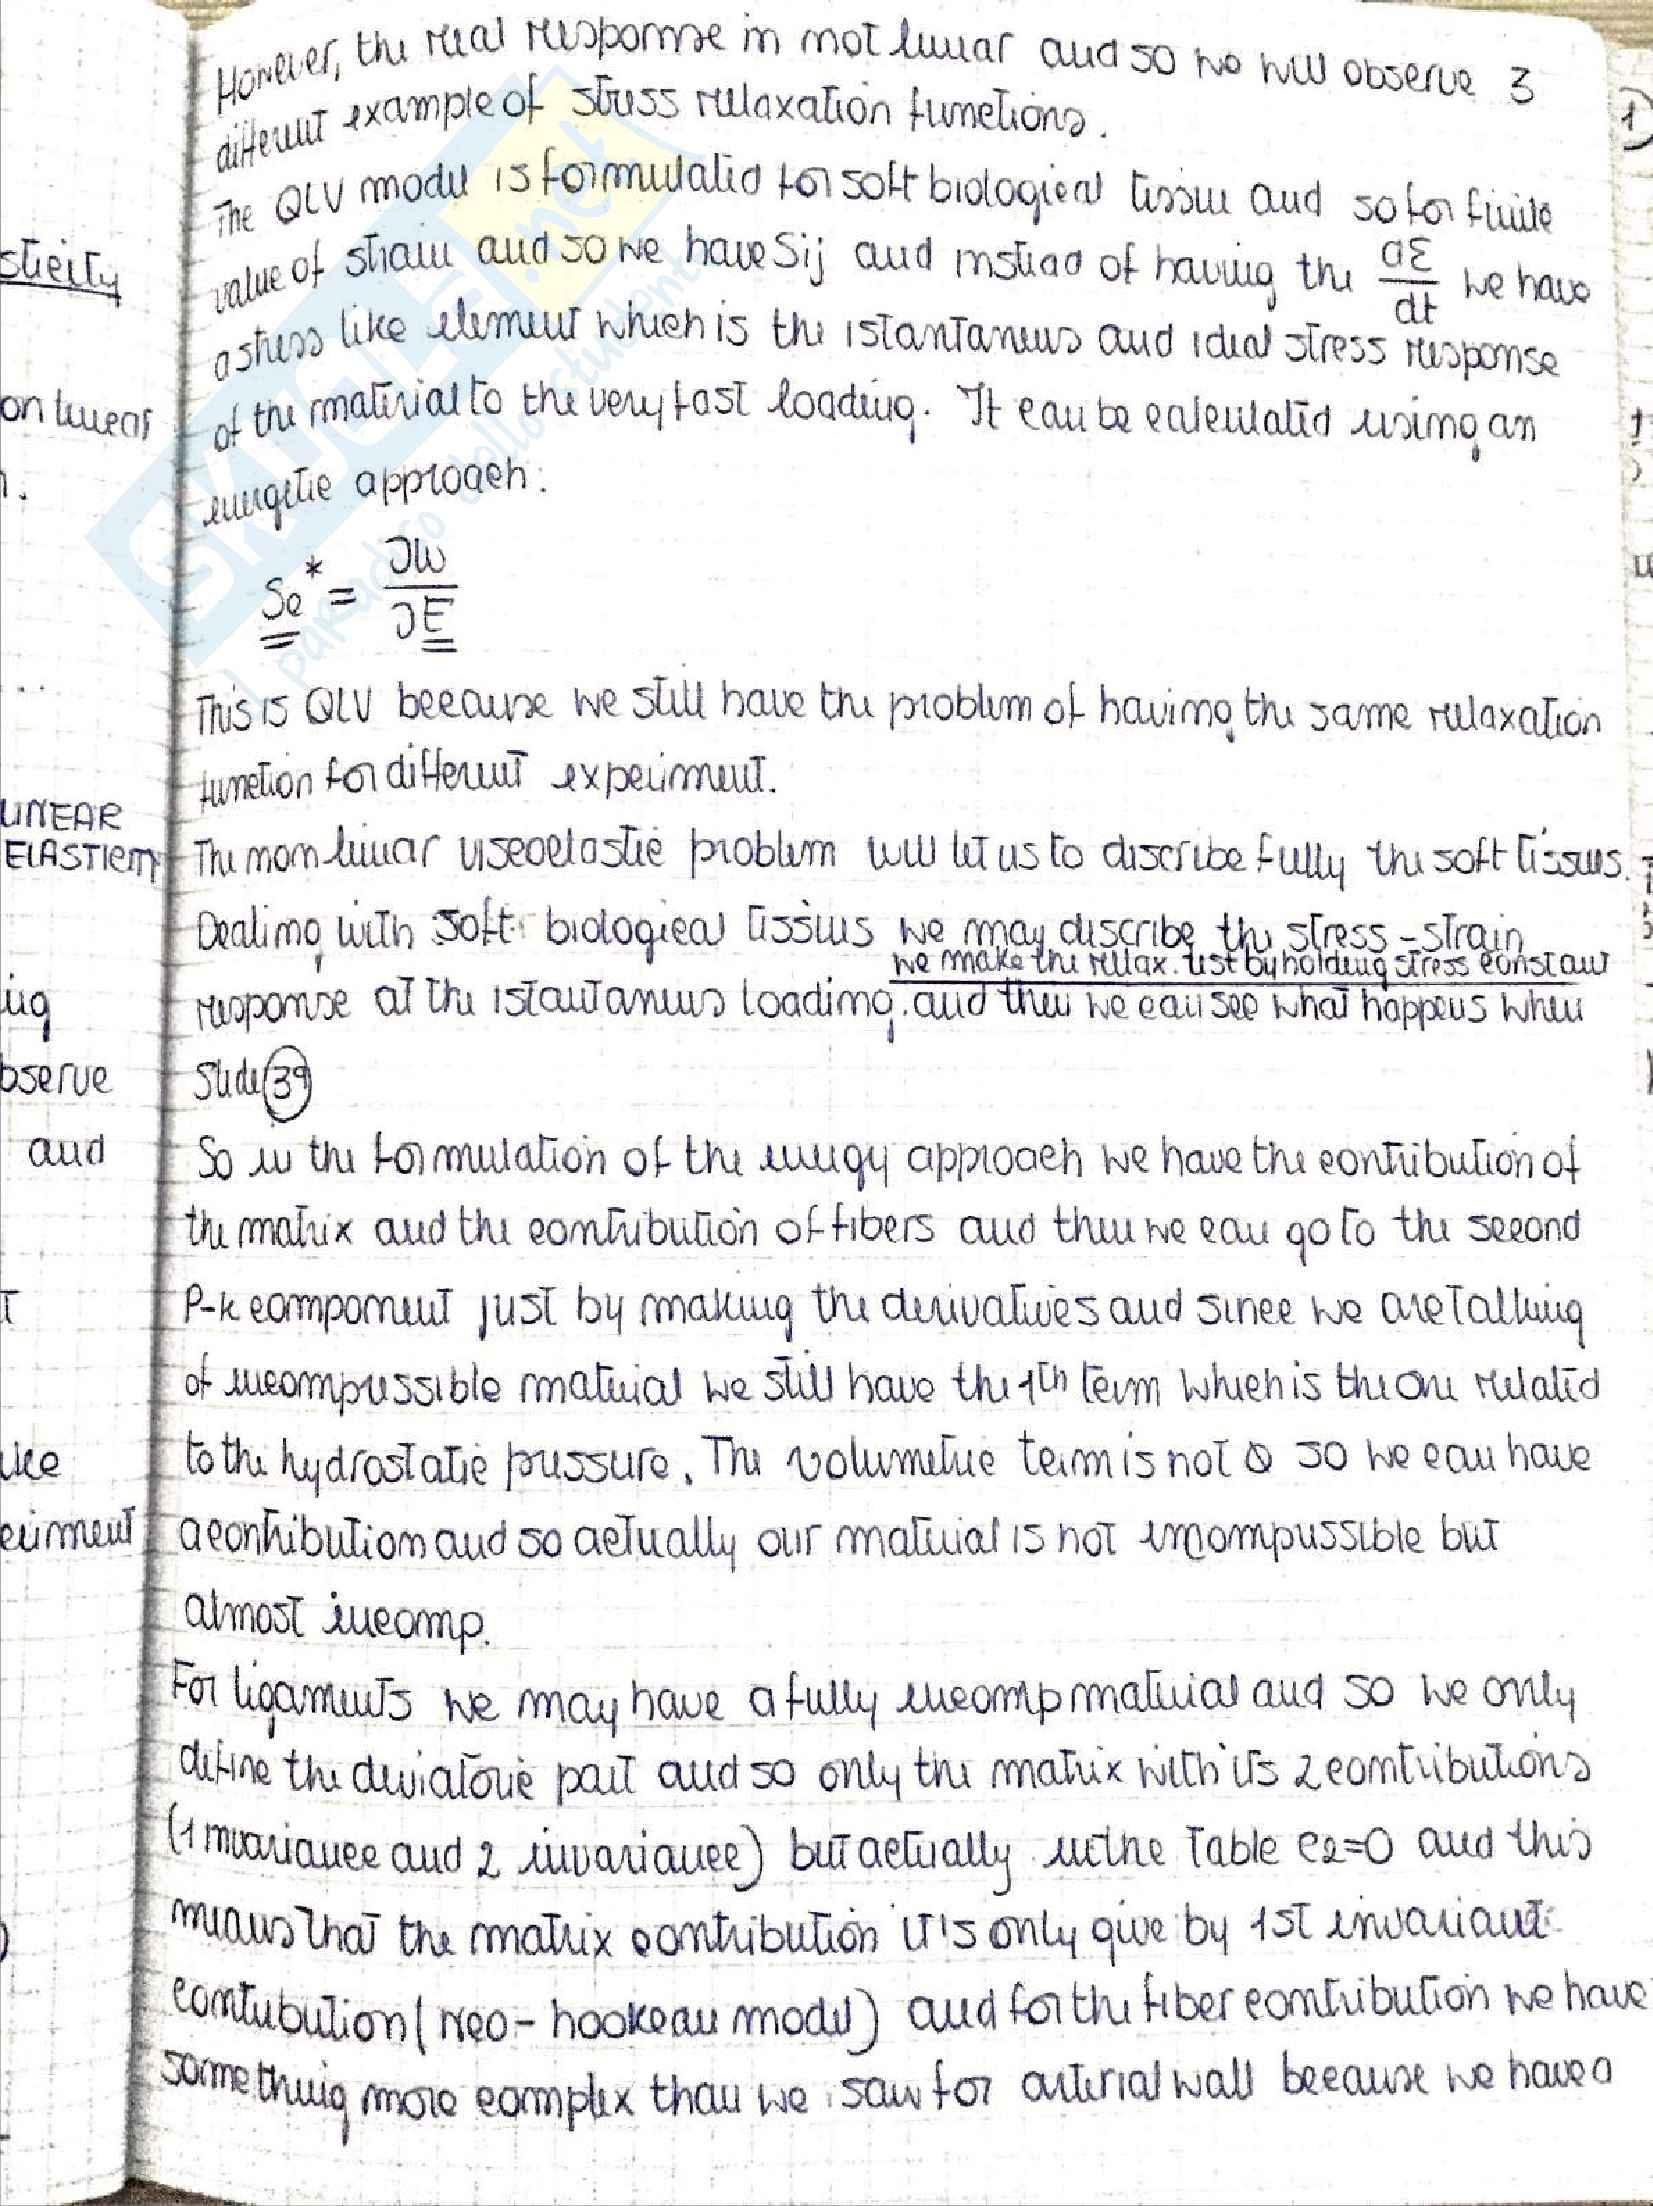 However, the real response in not linear and so we will observe 3
different example of stress relaxation functions.
The QLV model is formulated for soft biological tissue and so for finite
value of strain and so we have Sij and instead of having the dε/dt we have
a stress like element which is the istantaneus and ideal stress response
of the material to the very fast loading. It can be calculated using an
energetic approach:
Se* = ∂W/∂E
This is QLV because we still have the problem of having the same relaxation
function for different experiment.
The non linear viscoelastic problem will let us to describe fully the soft tissues.
Dealing with soft biological tissues we may describe the stress-strain
we make the relax. test by holding stress constant
response at the istantaneus loading. and then we can see what happens when
Slide 39
So in the formulation of the energy approach we have the contribution of
the matrix and the contribution of fibers and then we can go to the second
P-K component just by making the derivatives and since we are talking
of incompressible material we still have the 1th term which is the one related
to the hydrostatic pressure. The volumetric term is not 0 so we can have
a contribution and so actually our material is not incompressible but
almost incomp.
For ligaments we may have a fully incomp material and so we only
define the deviatoric part and so only the matrix with its 2 contributions
(1 invariance and 2 invariance) but actually in the table c2=0 and this
means that the matrix contribution it's only give by 1st invariant
contribution (neo-hookean model) and for the fiber contribution we have
something more complex than we saw for arterial wall because we have a
sticity
on linear
LINEAR
ELASTICITY
ing
bserve
and
eriment
1)
SKUOLA.net
il paradiso dello studente